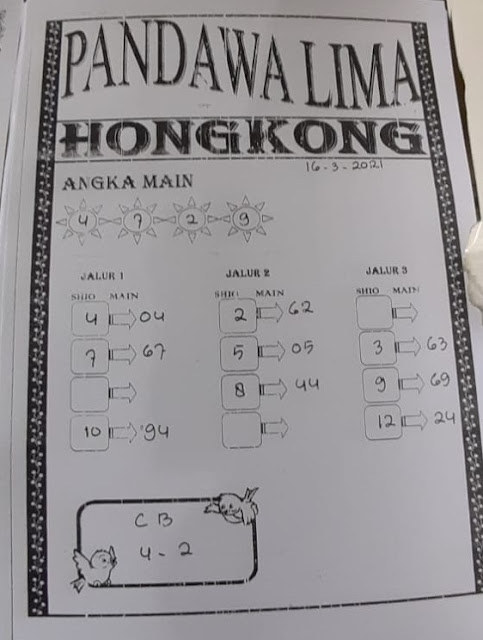 PANDAWA LIMA
HONGKONG
16-3-2021
ANGKA MAIN
4 7 2 9
JALUR 1 JALUR 2 JALUR 3
SHIO MAIN SHIO MAIN SHIO MAIN
4 04 2 62
7 67 5 05 3 63
8 44 9 69
10 94 12 24
CB
4-2